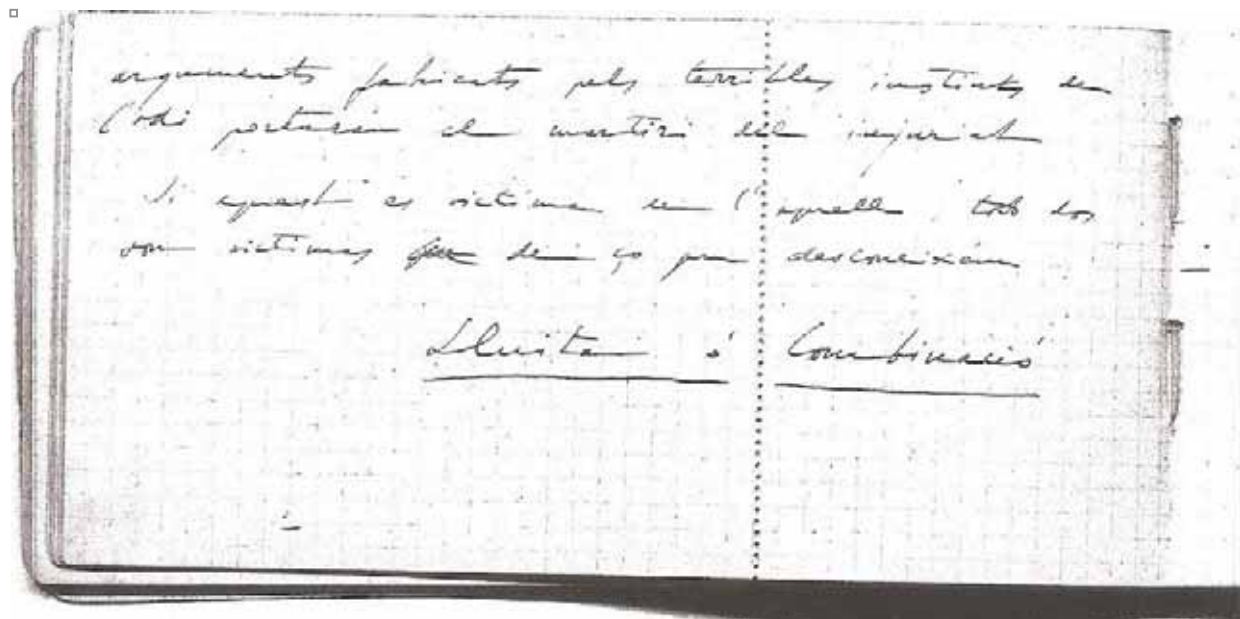 arguments fabricats pels terribles instints de
l'odi portarán al martiri del injuriat
Si aquest es victima de l'aquell tots dos
son victimas de ço que desconeixen
Lluita ó Combinació